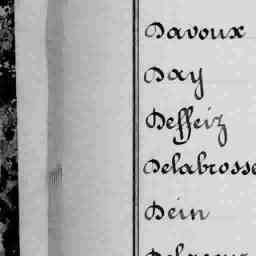 Davoux
Day
Deffeiz
Delabrosse
Dein